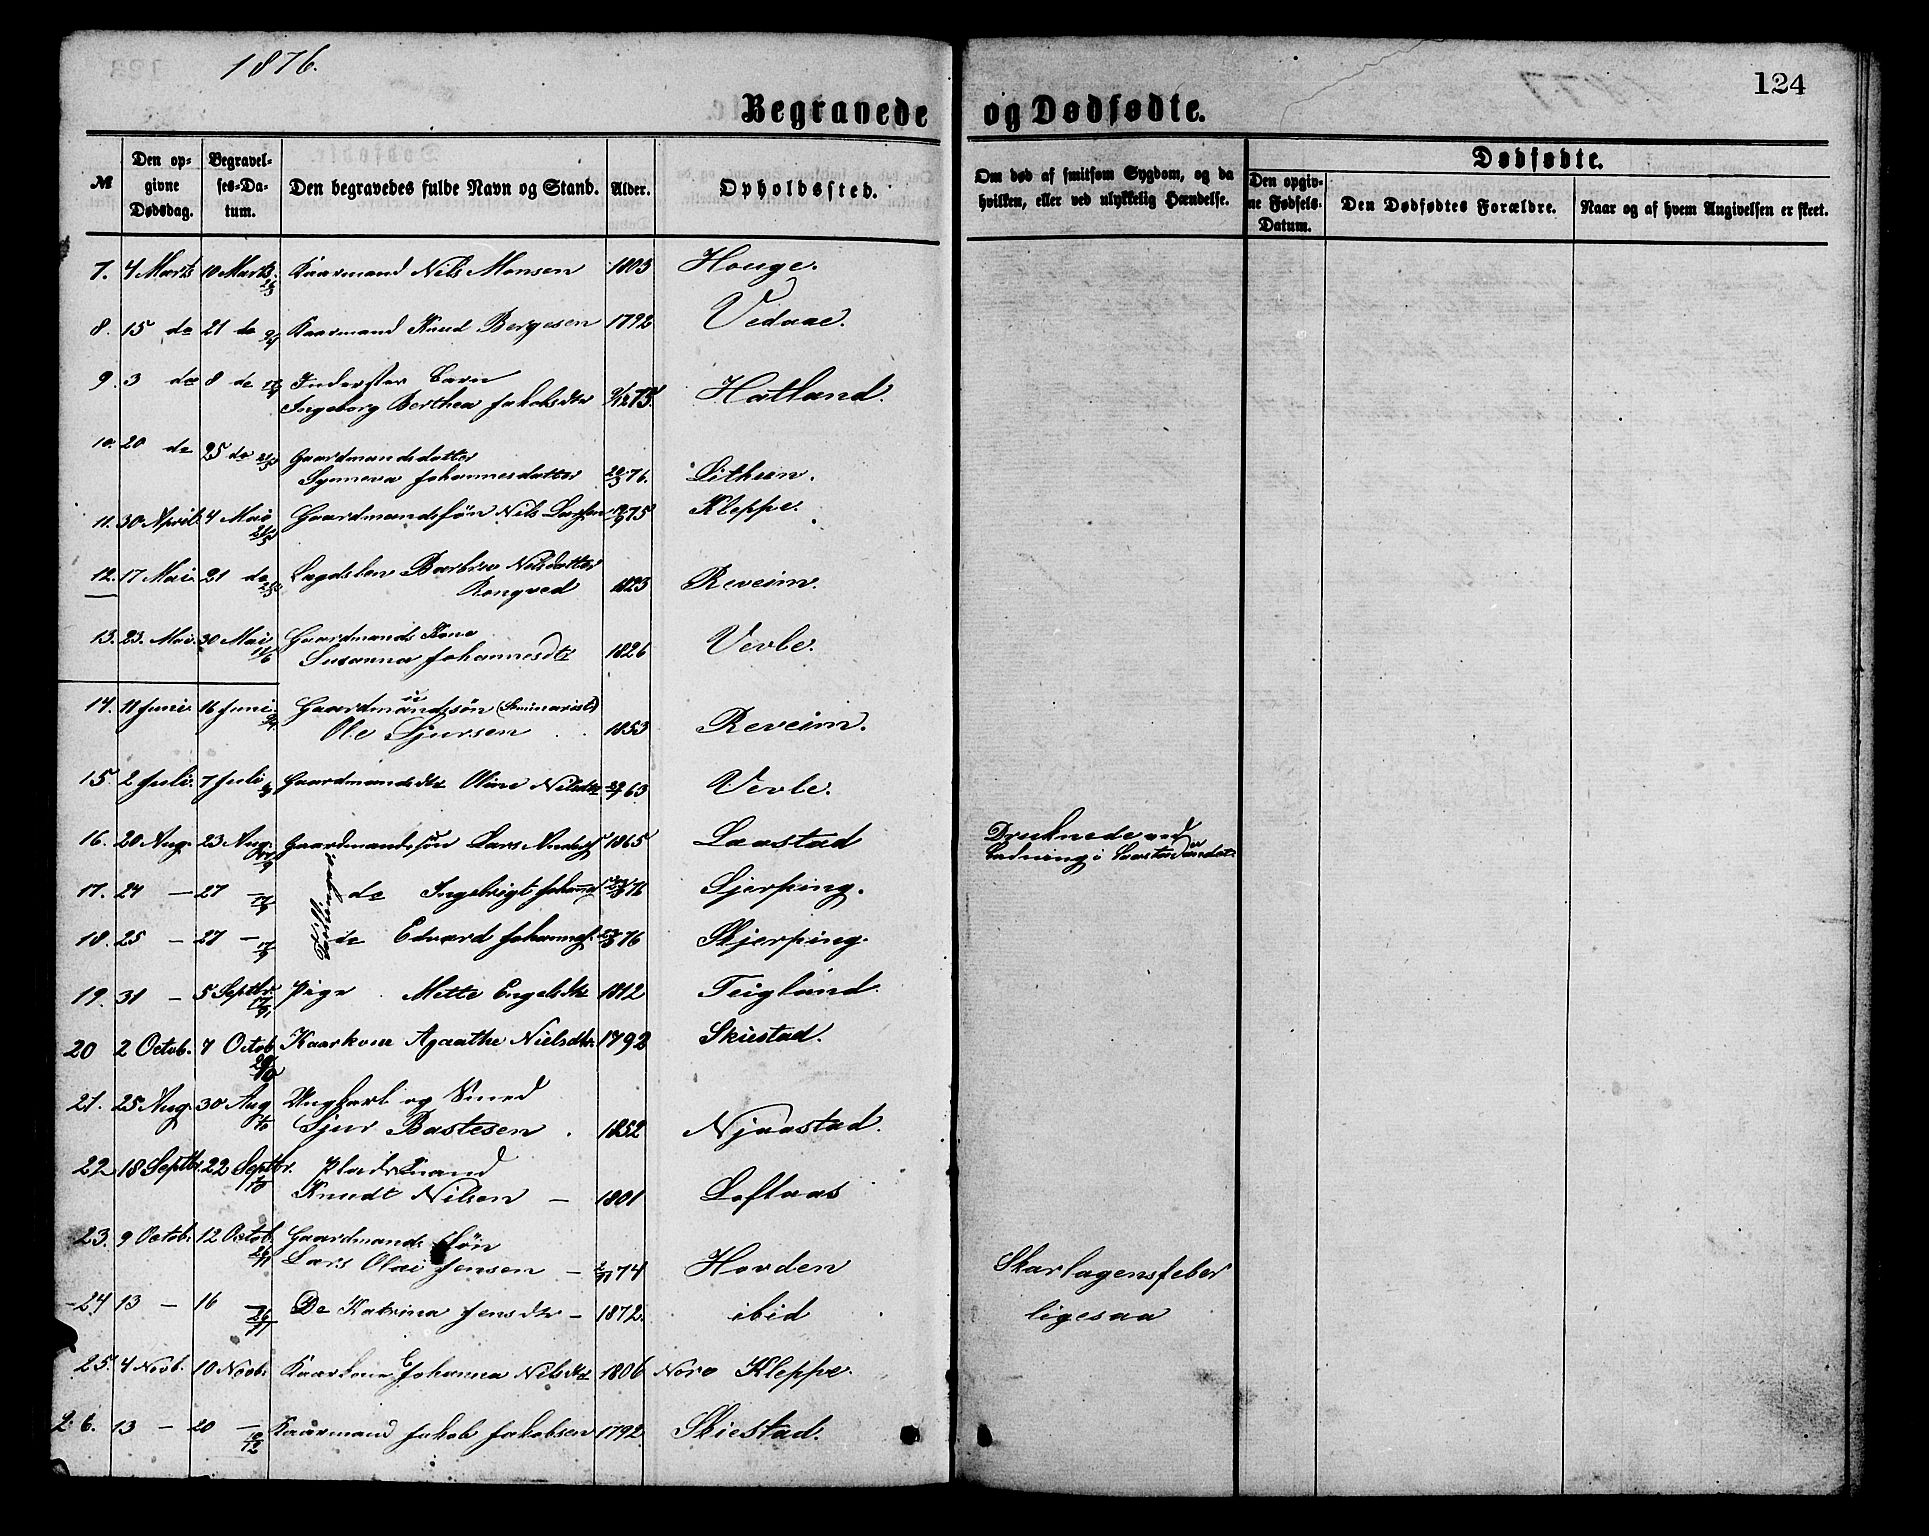 1876.
124
Begravede og Dødfødte.
№ Den opgivne Dødsdag. Begravelses-Datum. Den begravedes fulde Navn og Stand. Alder. Opholdssted. Om død af smitsom Sygdom, og da hvilken, eller ved ulykkelig Hændelse.
Dødfødte.
Den opgivne Fødsels-Datum. Den Dødfødtes Forældre. Naar og af hvem Angivelsen er skeet.
7. 4 Marts 10 Marts 26/3 Kaarmand Nils Monsen 1803 Houge.
8. 15 do 21 do Kaarmand Knud Bergesen 1792 Vedaae.
9. 3 do 8 do Inderster Barn
Ingeborg Berthea Jakobsdtr 75. Hatland.
10. 20 do 25 do Gaardmandsdatter
Synneva Johannesdatter 76. Lithun.
11. 30 April. 4 Mai Gaardmandssøn Nils Larsen 75 Kleppe.
12. 17 Mai. 21 do Lægdslem Barbro Nilsdatter
Rongved 1823 Reveim.
13. 23. Mai. 30 Mai 11/6 Gaardmands Kone
Susanna Johannesdtr 1826 Vevle.
14. 11 Juni. 16 Juni. Gaardmandssøn (Seminarist)
Ole Sjursen 1853 Reveim.
15. 2 Juli. 7 Juli Gaardmandsdtr Oline Nilsdtr 63. Vevle.
16. 20 Aug. 23 Aug. Gaardmandssøn Lars Anders 1865 Laastad Druknede ved
Badning i Laastadvandet.
17. 24 — 27 — 17/9 Tvillinger. do Ingebrigt Johans 76 Sjerping.
18. 25 — 27 — 17/9 do Edvard Johannes. 76 Skjerping.
19. 31 — 5 Septbr. Pige Mette Engelsdtr 1812 Teigland.
20 2 Octob. 7 Octob 29/10 Kaarkone Agaathe Nielsdtr. 1792 Skiestad.
21. 25 Aug. 30 Aug Ungkarl og Smed
Sjur Bastesen 1852 Njaastad.
22 18 Septbr. 22 Septbr. Pladsmand
Knudt Nilsen — 1801 Loftaas
23. 9 Octob. 12 Octob. 26/11 Gaardmands Søn
Lars Olai Jensen — 74 Hovden Skarlagensfeber
24 13 — 16 — 26/11 Do Katrina Jensdtr — 1872. ibid ligesaa
25. 4 Novb. 10 Novb. Kaarkone Johanna Nilsdtr 1806 Nore Kleppe.
26. 13 — 20 — 10/12 Kaarmand Jakob Jakobsen 1792 Skiestad.